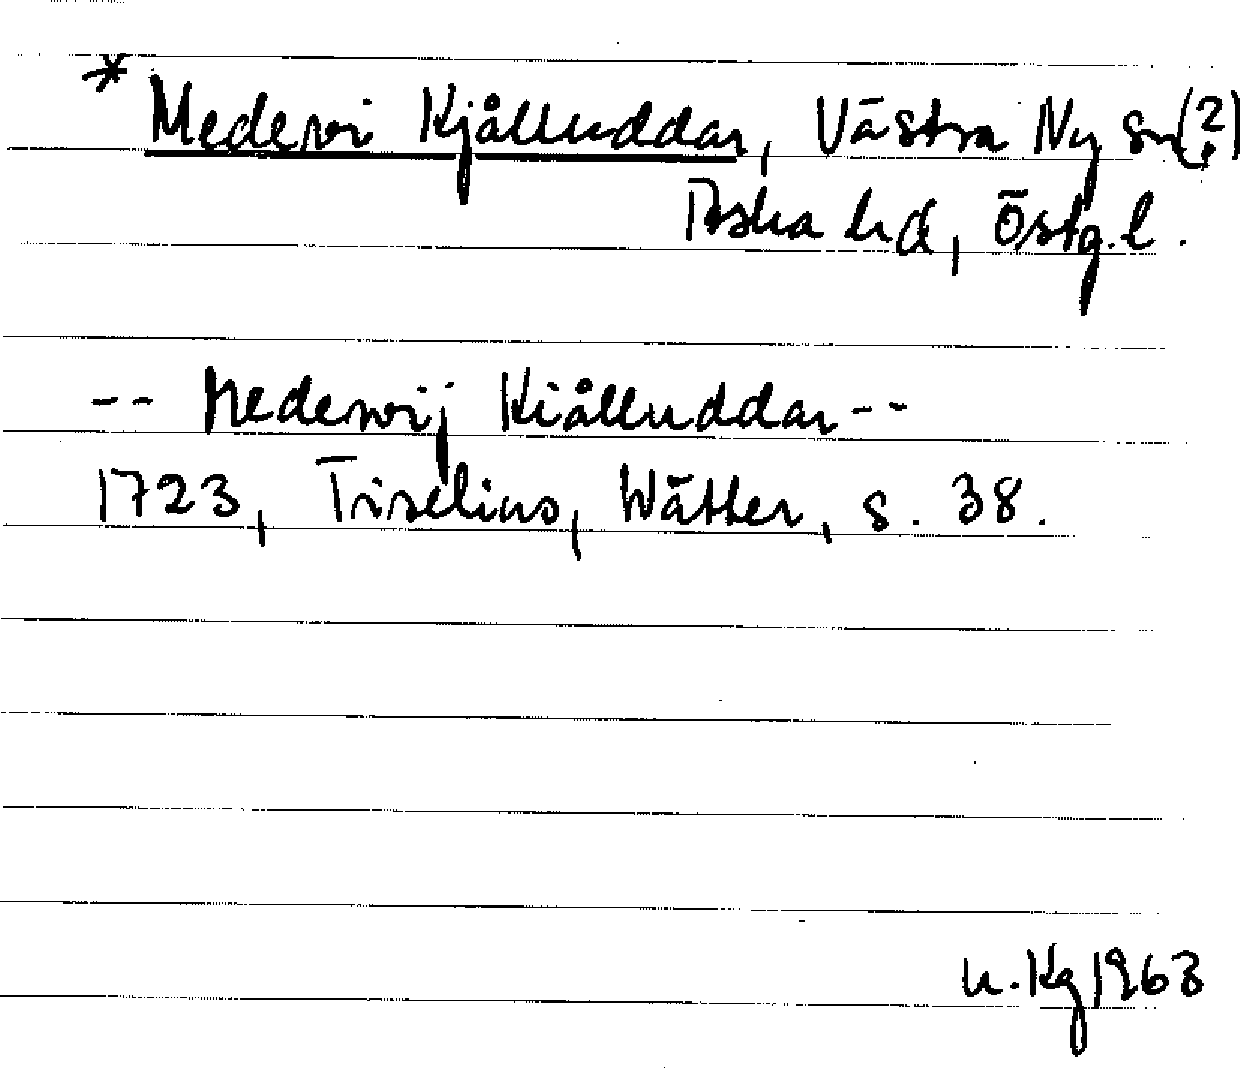 * Medevi Kjålluddar, Västra Ny sn(?)
Aska hd, Östg.l.
-- Medewij Kiålluddar --
1723, Tiselius, Wätter, s. 38.
1963